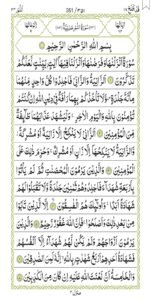 قَدْ اَفْلَحَ ١٨
351
النُّوْر ٢٤
سُوْرَةُ النُّوْرِ مَدَنِيَّةٌ
بِسْمِ اللّٰهِ الرَّحْمٰنِ الرَّحِيْمِ
سُوْرَةٌ اَنْزَلْنٰهَا وَفَرَضْنٰهَا وَاَنْزَلْنَا فِيْهَآ اٰيٰتٍۭ بَيِّنٰتٍ لَّعَلَّكُمْ
تَذَكَّرُوْنَ اَلزَّانِيَةُ وَالزَّانِيْ فَاجْلِدُوْا كُلَّ وَاحِدٍ مِّنْهُمَا
مِائَةَ جَلْدَةٍ وَّلَا تَاْخُذْكُمْ بِهِمَا رَاْفَةٌ فِيْ دِيْنِ اللّٰهِ اِنْ كُنْتُمْ
تُؤْمِنُوْنَ بِاللّٰهِ وَالْيَوْمِ الْاٰخِرِ وَلْيَشْهَدْ عَذَابَهُمَا طَآئِفَةٌ
مِّنَ الْمُؤْمِنِيْنَ اَلزَّانِيْ لَا يَنْكِحُ اِلَّا زَانِيَةً اَوْ مُشْرِكَةً
وَّالزَّانِيَةُ لَا يَنْكِحُهَآ اِلَّا زَانٍ اَوْ مُشْرِكٌ وَحُرِّمَ ذٰلِكَ عَلَى
الْمُؤْمِنِيْنَ وَالَّذِيْنَ يَرْمُوْنَ الْمُحْصَنٰتِ ثُمَّ لَمْ يَاْتُوْا بِاَرْبَعَةِ
شُهَدَآءَ فَاجْلِدُوْهُمْ ثَمٰنِيْنَ جَلْدَةً وَّلَا تَقْبَلُوْا لَهُمْ
شَهَادَةً اَبَدًا وَاُولٰٓئِكَ هُمُ الْفٰسِقُوْنَ اِلَّا الَّذِيْنَ تَابُوْا
مِنْۢ بَعْدِ ذٰلِكَ وَاَصْلَحُوْا فَاِنَّ اللّٰهَ غَفُوْرٌ رَّحِيْمٌ وَالَّذِيْنَ
يَرْمُوْنَ اَزْوَاجَهُمْ وَلَمْ يَكُنْ لَّهُمْ شُهَدَآءُ اِلَّآ اَنْفُسُهُمْ
فَشَهَادَةُ اَحَدِهِمْ اَرْبَعُ شَهٰدٰتٍۭ بِاللّٰهِ اِنَّهٗ لَمِنَ الصّٰدِقِيْنَ
وَالْخَامِسَةُ اَنَّ لَعْنَتَ اللّٰهِ عَلَيْهِ اِنْ كَانَ مِنَ الْكٰذِبِيْنَ